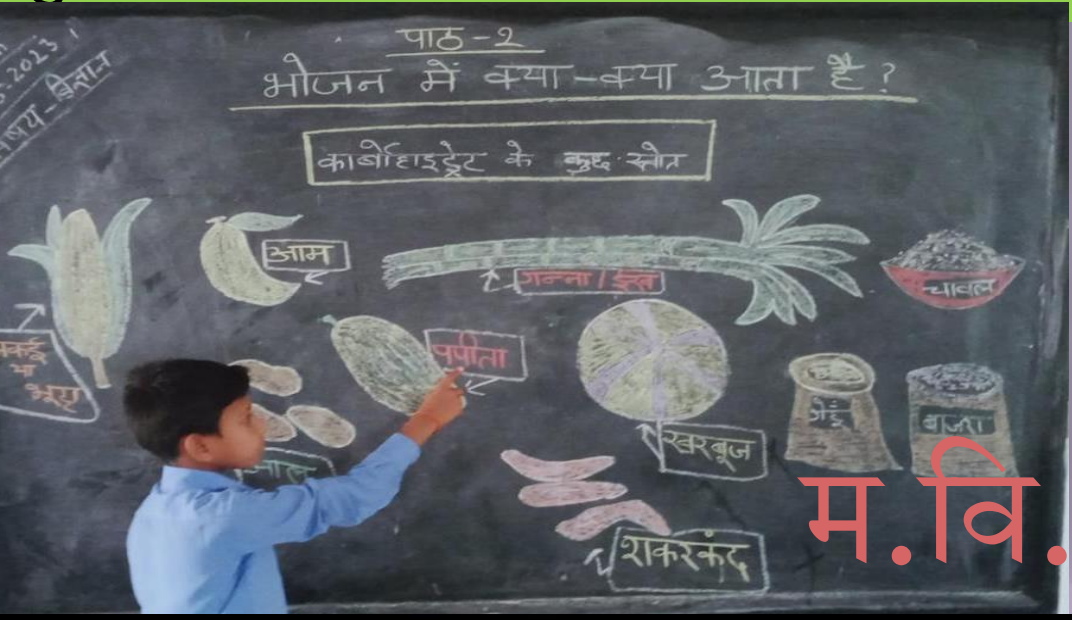 -2023।
विषय-विज्ञान
पाठ-२
भोजन में क्या-क्या आता है?
कार्बोहाइड्रेट के कुछ स्त्रोत
आम
गन्ना / ईख
चावल
मकई
या
भुट्टा
पपीता
गेहूँ
बाजरा
खरबूज
शकरकंद
म.वि.